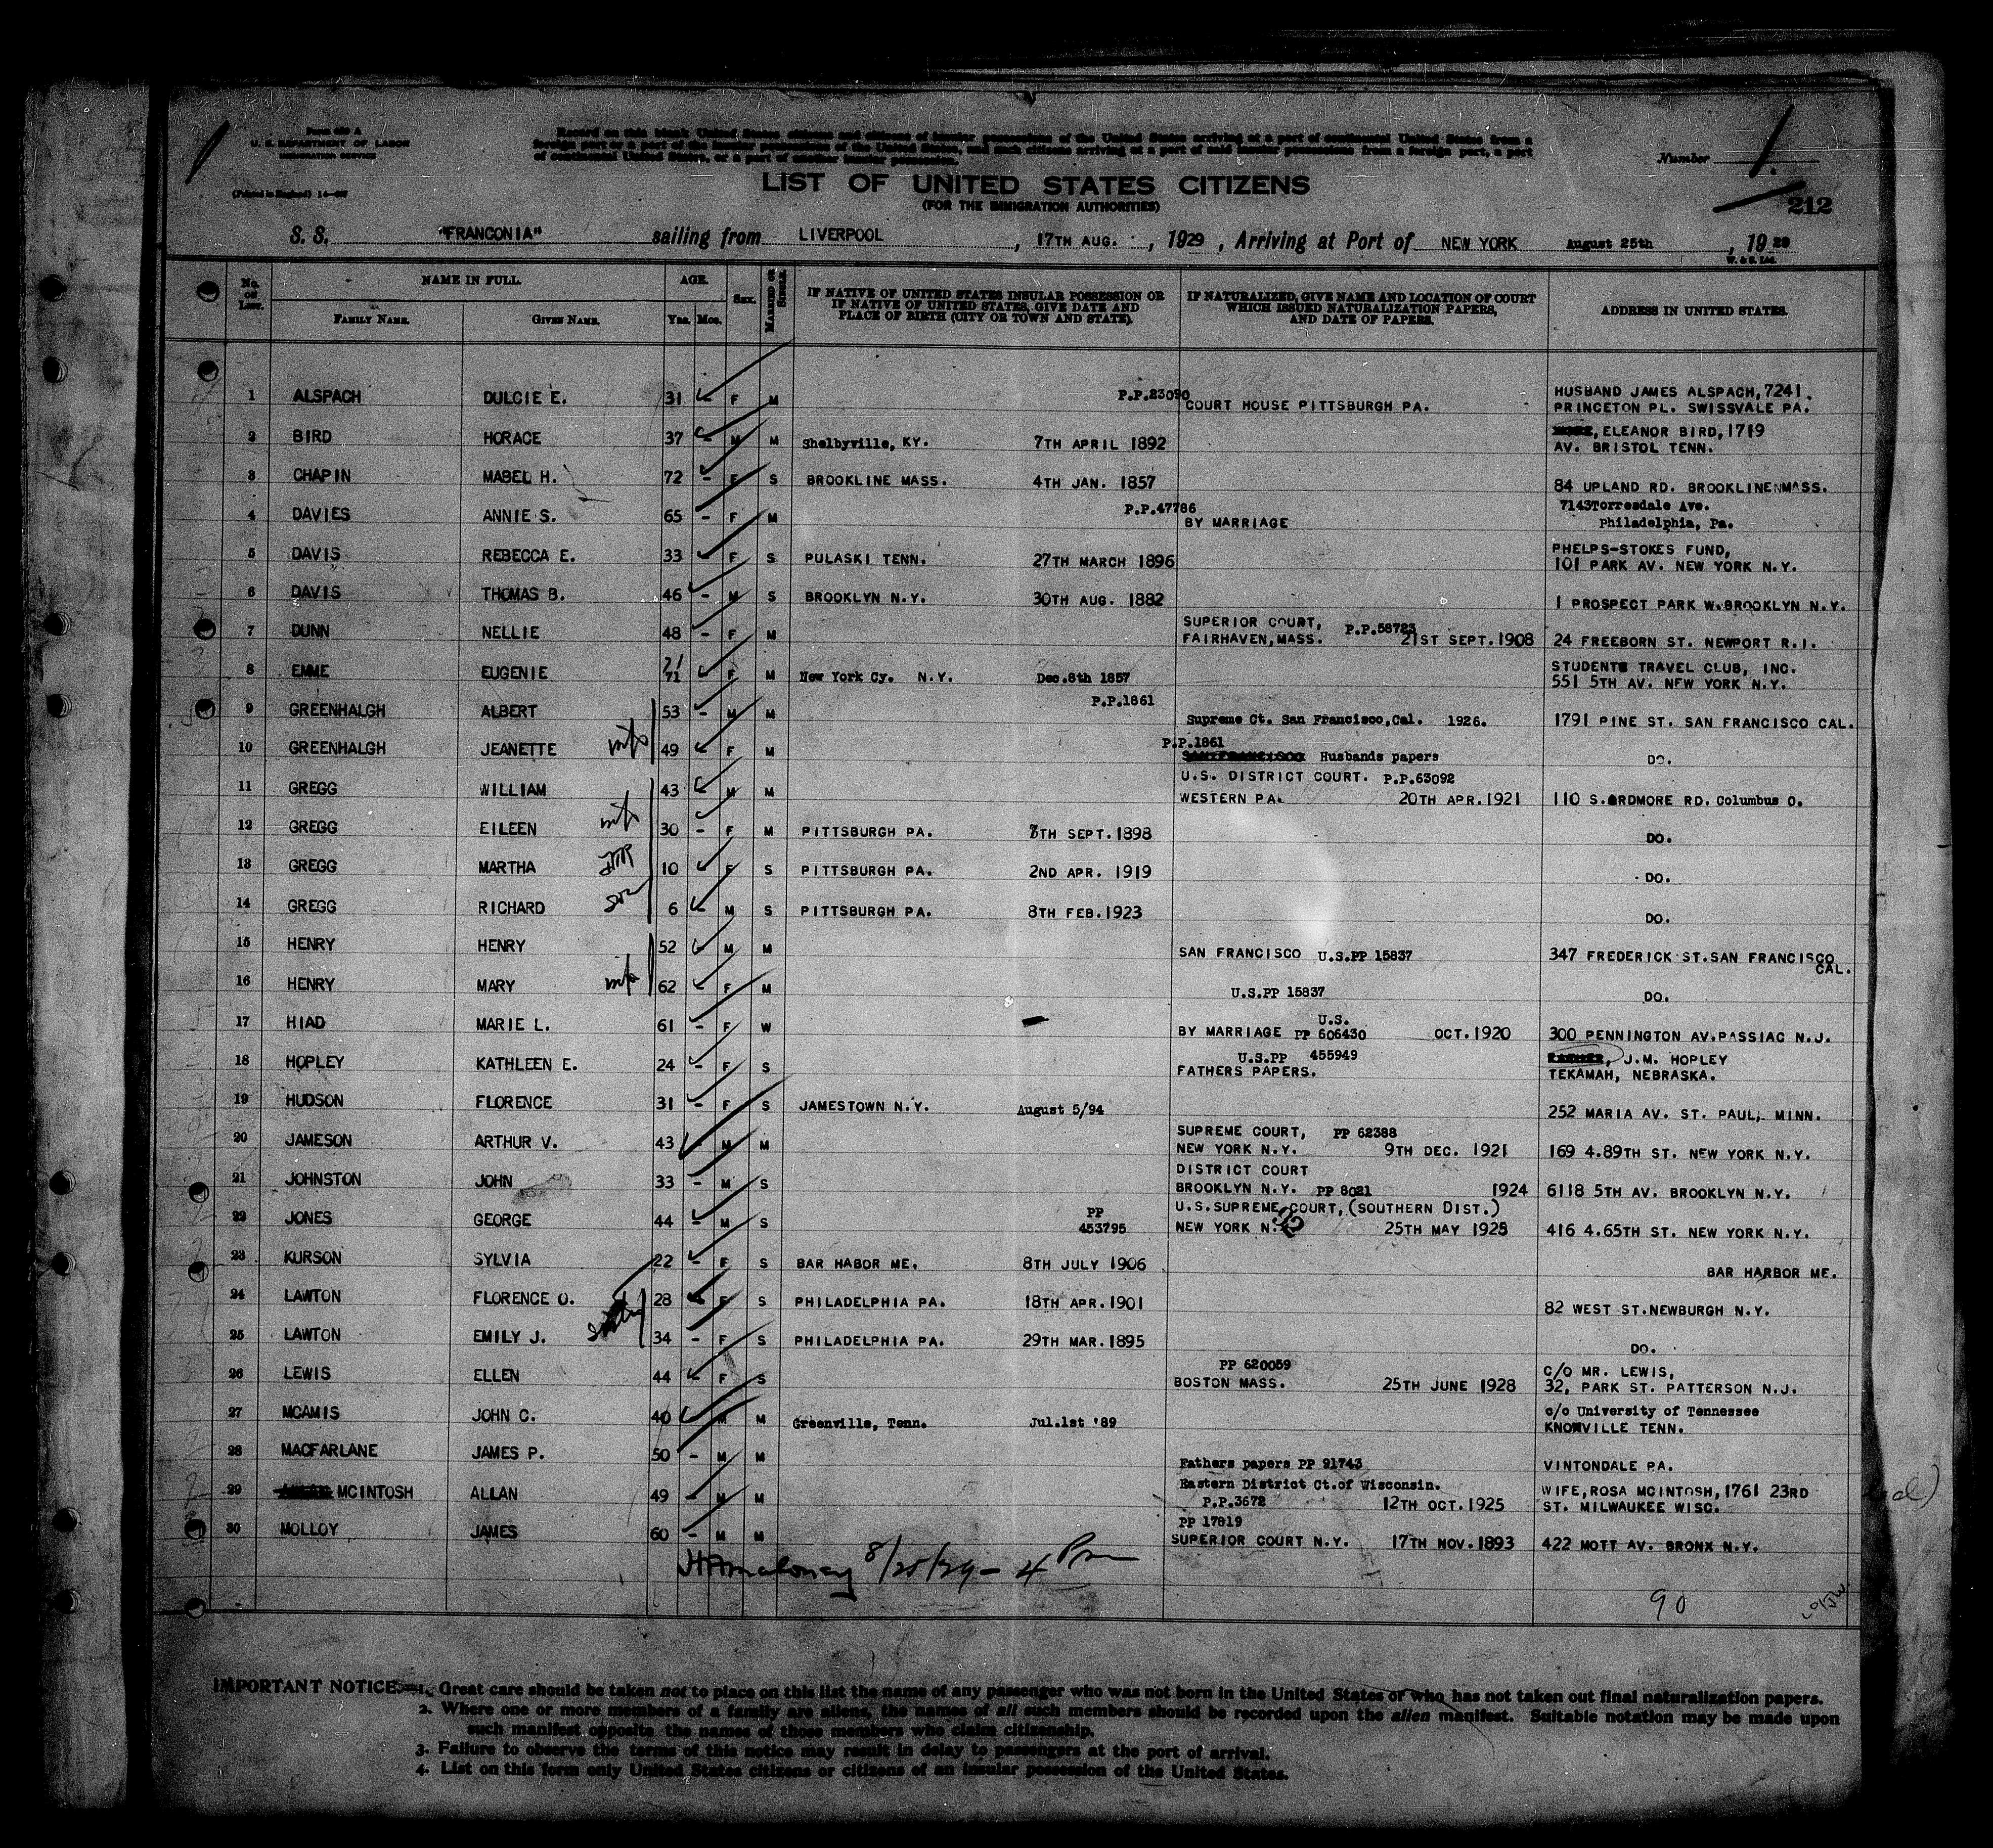 Form 630 A
U. S. DEPARTMENT OF LABOR
IMMIGRATION SERVICE
(Printed in England)
Record on this blank United States citizens and citizens of insular possessions of the United States arriving at a port of continental United States from a
foreign port or a port of the insular possessions of the United States, and such citizens arriving at a port of said insular possessions from a foreign port, a port
of continental United States, or a port of another insular possession.
Number 1.
LIST OF UNITED STATES CITIZENS
(FOR THE IMMIGRATION AUTHORITIES)
212
S. S. "FRANCONIA" sailing from LIVERPOOL, 17TH AUG., 1929, Arriving at Port of NEW YORK August 25th, 1929
W. & S. Ltd.
No. on List. NAME IN FULL. AGE. Sex. MARRIED OR SINGLE. IF NATIVE OF UNITED STATES INSULAR POSSESSION OR IF NATIVE OF UNITED STATES, GIVE DATE AND PLACE OF BIRTH (CITY OR TOWN AND STATE). IF NATURALIZED, GIVE NAME AND LOCATION OF COURT WHICH ISSUED NATURALIZATION PAPERS, AND DATE OF PAPERS. ADDRESS IN UNITED STATES.
FAMILY NAME. GIVEN NAME. Yrs. Mos.
1 ALSPACH DULCIE E. 31 - F M P.P.23090 COURT HOUSE PITTSBURGH PA. HUSBAND JAMES ALSPACH, 7241.
PRINCETON PL. SWISSVALE PA.
2 BIRD HORACE 37 - M M Shelbyville, KY. 7TH APRIL 1892 , ELEANOR BIRD, 1719
AV. BRISTOL TENN.
3 CHAPIN MABEL H. 72 - F S BROOKLINE MASS. 4TH JAN. 1857 84 UPLAND RD. BROOKLINE MASS.
4 DAVIES ANNIE S. 65 - F M P.P.47786 BY MARRIAGE 7143 Torresdale Ave.
Philadelphia, Pa.
5 DAVIS REBECCA E. 33 F S PULASKI TENN. 27TH MARCH 1896 PHELPS-STOKES FUND,
101 PARK AV. NEW YORK N.Y.
6 DAVIS THOMAS B. 46 - M S BROOKLYN N.Y. 30TH AUG. 1882 1 PROSPECT PARK W. BROOKLYN N.Y.
7 DUNN NELLIE 48 - F M SUPERIOR COURT, P.P.58723
FAIRHAVEN, MASS. 21ST SEPT. 1908 24 FREEBORN ST. NEWPORT R.I.
8 EMME EUGENIE 71 F M New York Cy. N.Y. Dec.8th 1857 STUDENTS TRAVEL CLUB, INC.
551 5TH AV. NEW YORK N.Y.
9 GREENHALGH ALBERT 53 - M M P.P.1861 Supreme Ct. San Francisco, Cal. 1926. 1791 PINE ST. SAN FRANCISCO CAL.
10 GREENHALGH JEANETTE wife 49 F M P.P.1861
SAN FRANCISCO Husbands papers DO.
11 GREGG WILLIAM 43 M M U.S. DISTRICT COURT. P.P.63092
WESTERN PA. 20TH APR. 1921 110 S. ARDMORE RD. Columbus O.
12 GREGG EILEEN wife 30 - F M PITTSBURGH PA. 8TH SEPT. 1898 DO.
13 GREGG MARTHA 10 F S PITTSBURGH PA. 2ND APR. 1919 DO.
14 GREGG RICHARD son 6 M S PITTSBURGH PA. 8TH FEB. 1923 DO.
15 HENRY HENRY 52 M M SAN FRANCISCO U.S.PP 15837 347 FREDERICK ST. SAN FRANCISCO
CAL.
16 HENRY MARY wife 62 F M U.S.PP 15837 DO.
17 HIAD MARIE L. 61 - F W BY MARRIAGE U.S. PP 606430 OCT. 1920 300 PENNINGTON AV. PASSIAC N.J.
18 HOPLEY KATHLEEN E. 24 - F S U.S.PP 455949
FATHERS PAPERS. FATHER, J.M. HOPLEY
TEKAMAH, NEBRASKA.
19 HUDSON FLORENCE 31 - F S JAMESTOWN N.Y. August 5/94 252 MARIA AV. ST. PAUL, MINN.
20 JAMESON ARTHUR V. 43 M M SUPREME COURT, PP 62388
NEW YORK N.Y. 9TH DEC. 1921 169 4.89TH ST. NEW YORK N.Y.
21 JOHNSTON JOHN 33 - M S DISTRICT COURT
BROOKLYN N.Y. PP 8021 1924 6118 5TH AV. BROOKLYN N.Y.
22 JONES GEORGE 44 - M S PP 453795 U.S. SUPREME COURT, (SOUTHERN DIST.)
NEW YORK N.Y. 25TH MAY 1925 416 4.65TH ST. NEW YORK N.Y.
23 KURSON SYLVIA 22 - F S BAR HABOR ME. 8TH JULY 1906 BAR HARBOR ME.
24 LAWTON FLORENCE O. 28 F S PHILADELPHIA PA. 18TH APR. 1901 82 WEST ST. NEWBURGH N.Y.
25 LAWTON EMILY J. 34 - F S PHILADELPHIA PA. 29TH MAR. 1895 DO.
26 LEWIS ELLEN 44 F S PP 620059
BOSTON MASS. 25TH JUNE 1928 C/O MR. LEWIS,
32, PARK ST. PATTERSON N.J.
27 MCAMIS JOHN C. 40 M M Greenville, Tenn. Jul.1st '89 c/o University of Tennessee
KNOXVILLE TENN.
28 MACFARLANE JAMES P. 50 - M M Fathers papers PP 91743 VINTONDALE PA.
29 MCINTOSH ALLAN 49 - M M Eastern District Ct. of Wisconsin.
P.P.3672 12TH OCT. 1925 WIFE, ROSA MCINTOSH, 1761 23RD
ST. MILWAUKEE WISC.
30 MOLLOY JAMES 60 - M M PP 17819
SUPERIOR COURT N.Y. 17TH NOV. 1893 422 MOTT AV. BRONX N.Y.
8/25/29 - 4 Pm
90
IMPORTANT NOTICE:—1. Great care should be taken not to place on this list the name of any passenger who was not born in the United States or who has not taken out final naturalization papers.
2. Where one or more members of a family are aliens, the names of all such members should be recorded upon the alien manifest. Suitable notation may be made upon
such manifest opposite the names of those members who claim citizenship.
3. Failure to observe the terms of this notice may result in delay to passengers at the port of arrival.
4. List on this form only United States citizens or citizens of an insular possession of the United States.